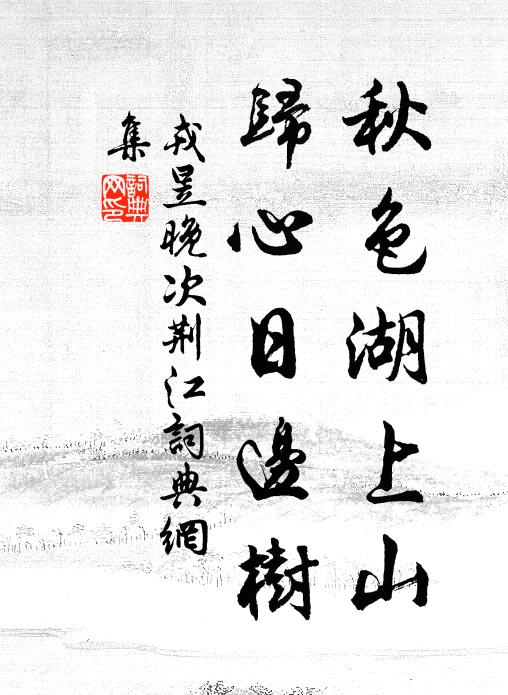 秋色湖上山
歸心日邊樹
戎昱晚次荆江詞典網
集
詞典
网印